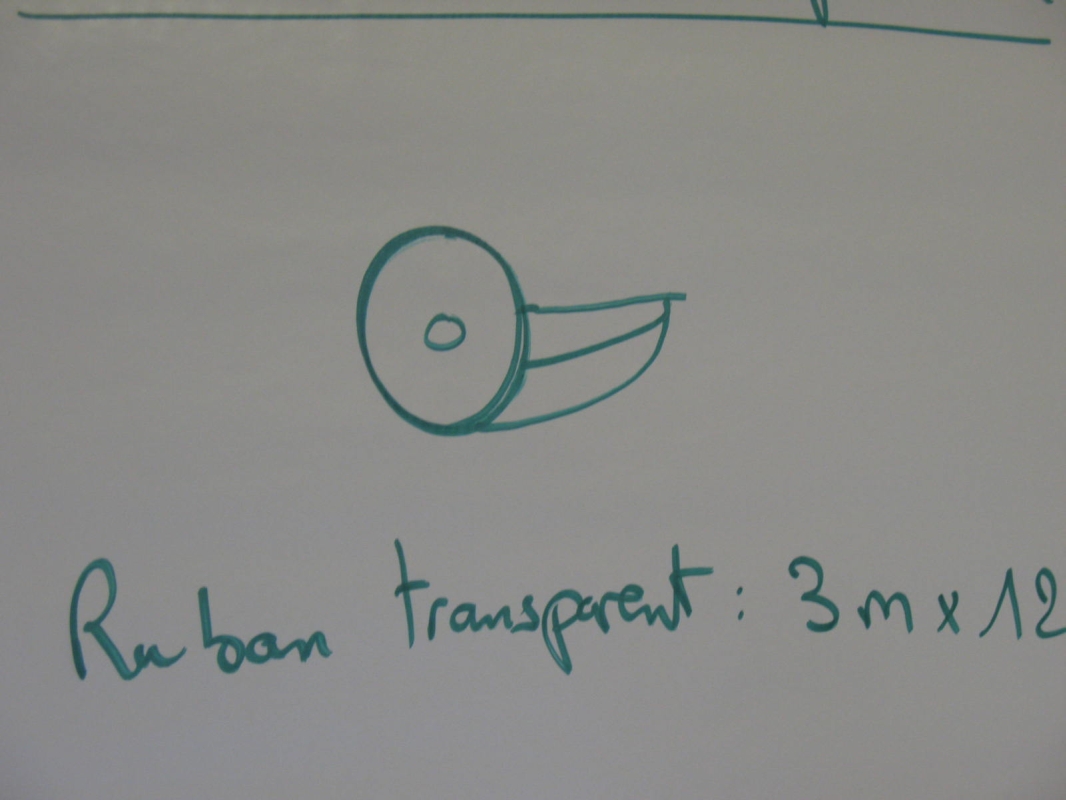 Ruban transparent : 3 m x 12